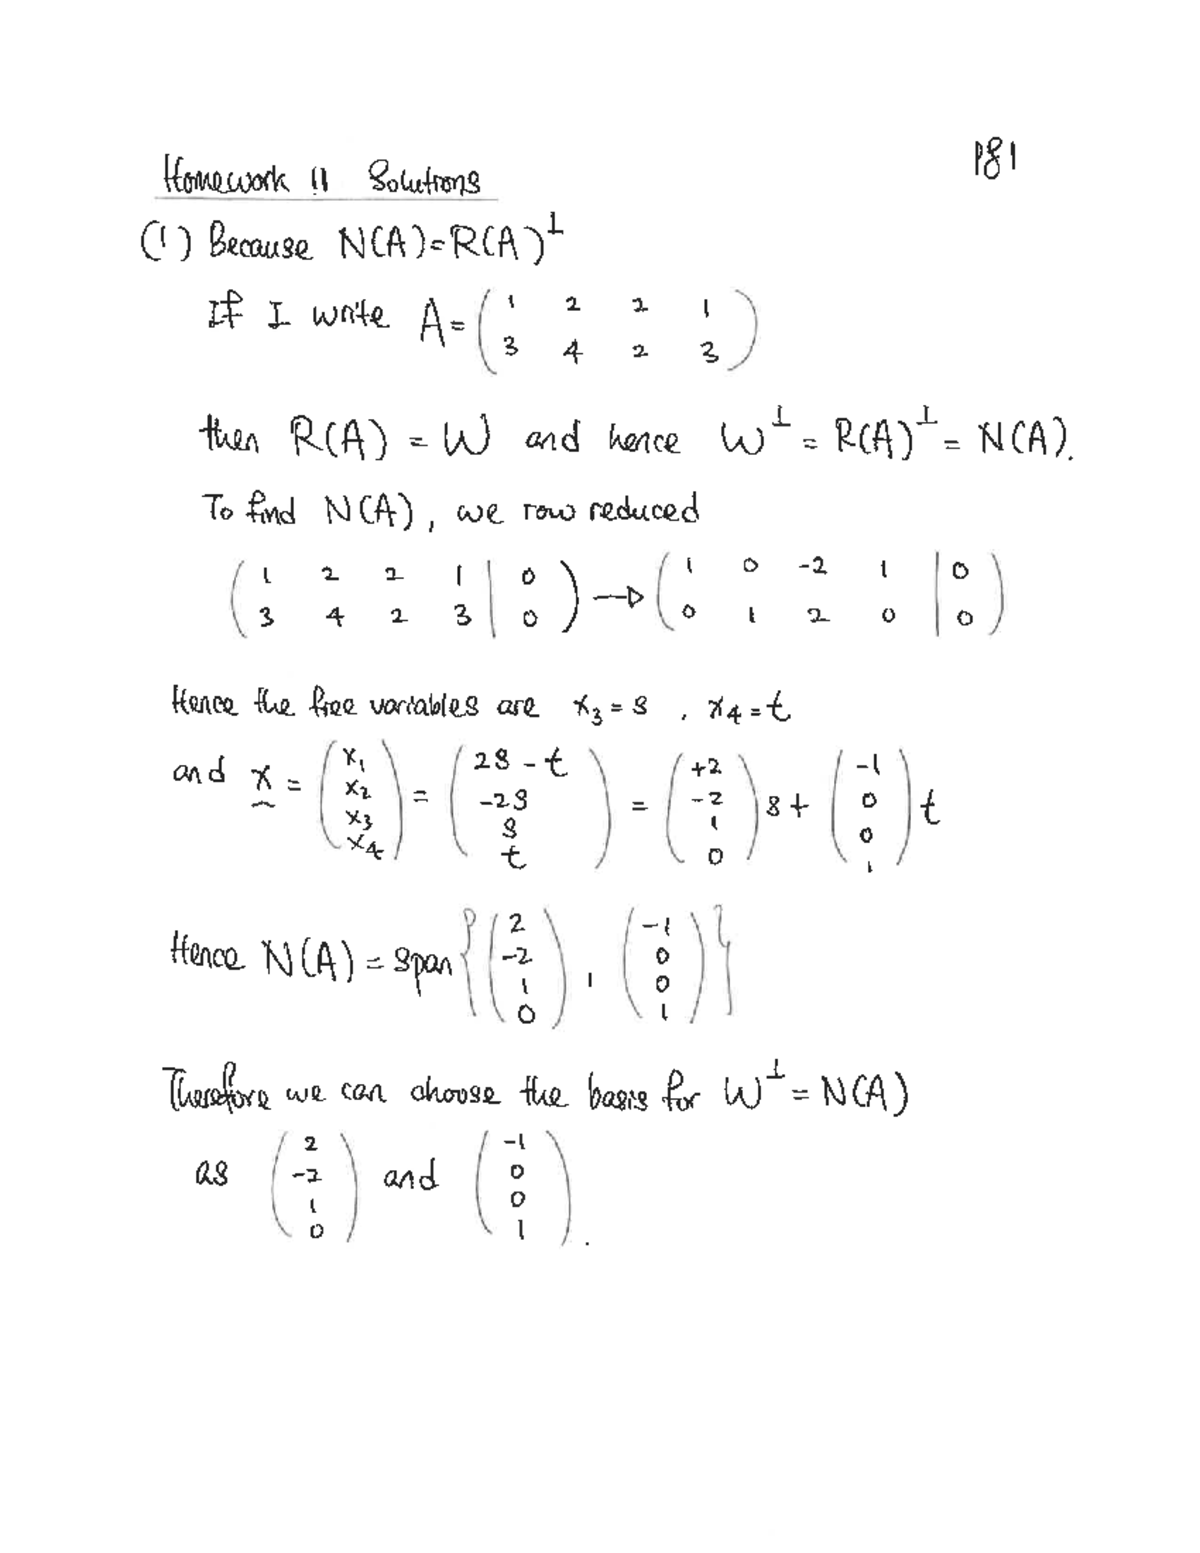 Pg 1
Homework 11 Solutions
(1) Because N(A)=R(A)^⊥
If I write A = ( 1 2 2 1
3 4 2 3 )
then R(A) = W and hence W^⊥ = R(A)^⊥ = N(A).
To find N(A), we row reduced
( 1 2 2 1 | 0 ) → ( 1 0 -2 1 | 0 )
( 3 4 2 3 | 0 ) ( 0 1 2 0 | 0 )
Hence the free variables are x₃ = s , x₄ = t
and x = ( x₁ x₂ x₃ x₄ ) = ( 2s - t -2s s t ) = ( +2 -2 1 0 ) s + ( -1 0 0 1 ) t
Hence N(A) = span { ( 2 -2 1 0 ) , ( -1 0 0 1 ) }
Therefore we can choose the basis for W^⊥ = N(A)
as ( 2 -2 1 0 ) and ( -1 0 0 1 ) .